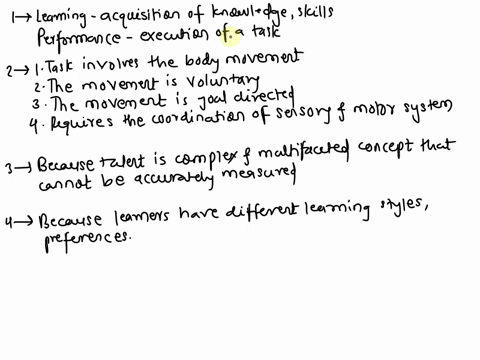 1→ Learning - acquisition of knowledge, skills
Performance - execution of a task
2→ 1. Task involves the body movement
2. The movement is voluntary
3. The movement is goal directed
4. Requires the coordination of sensory & motor system
3→ Because talent is complex & multifaceted concept that
cannot be accurately measured
4→ Because learners have different learning styles,
preferences.